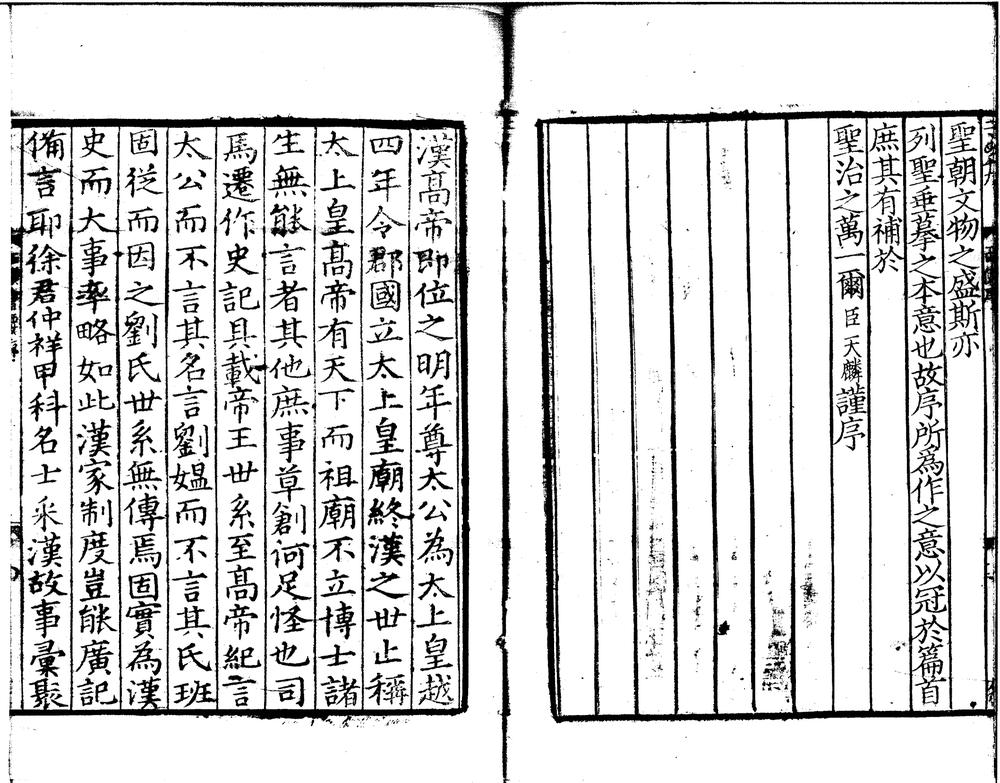 聖朝文物之盛斯亦
列聖垂摹之本意也故序所爲作之意以冠於篇首
庶其有補於
聖治之萬一爾臣天麟謹序
漢高帝即位之明年尊太公為太上皇越
四年令郡國立太上皇廟終漢之世止稱
太上皇高帝有天下而祖廟不立博士諸
生無能言者其他庶事草創何足怪也司
馬遷作史記具載帝王世系至高帝紀言
太公而不言其名言劉媼而不言其氏班
固從而因之劉氏世系無傳焉固實為漢
史而大事率略如此漢家制度豈能廣記
備言耶徐君仲祥甲科名士采漢故事彙聚